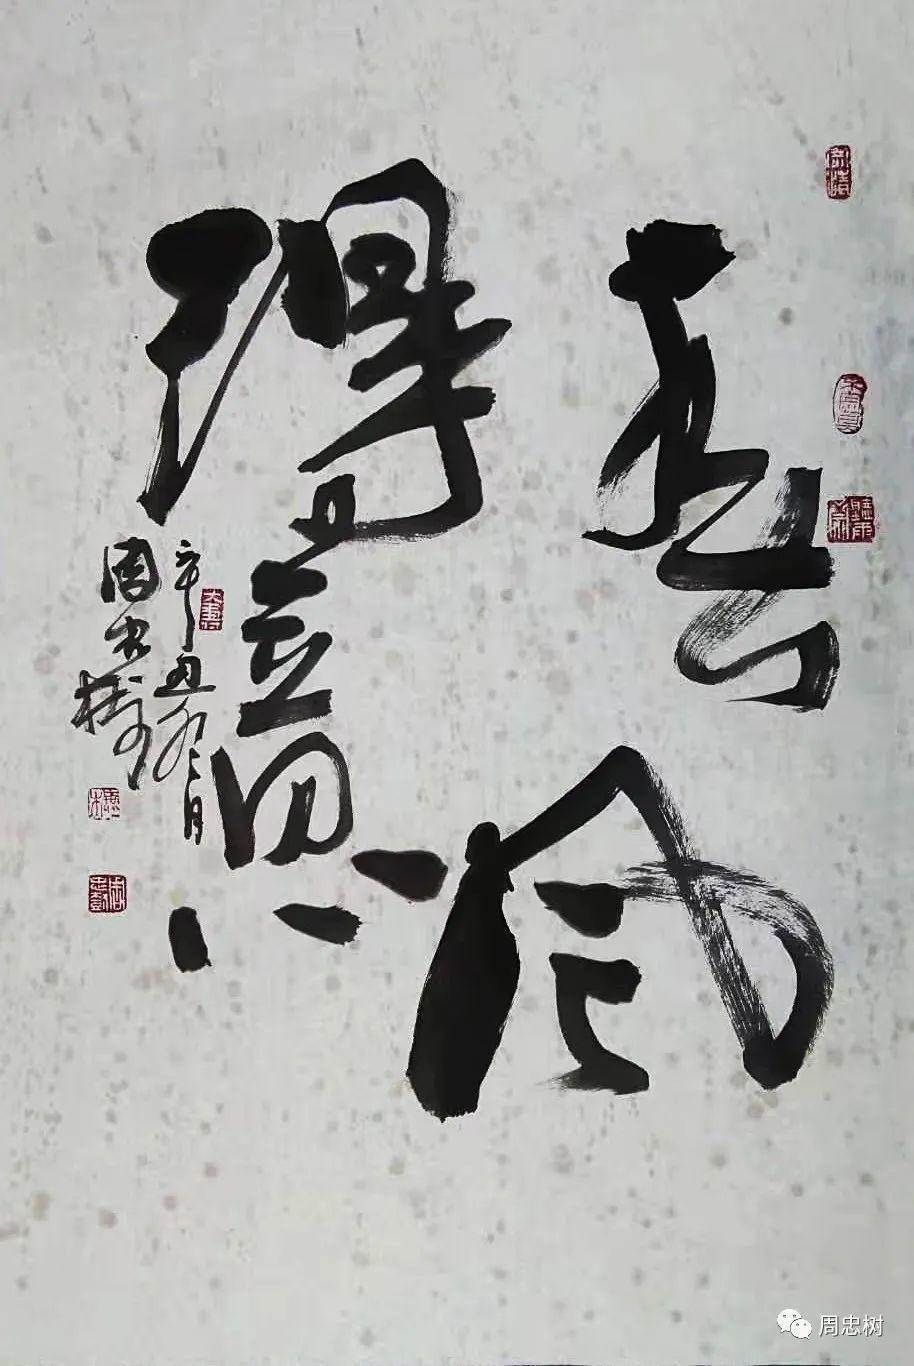 春风
得意
辛丑冬月
周忠树
周忠树